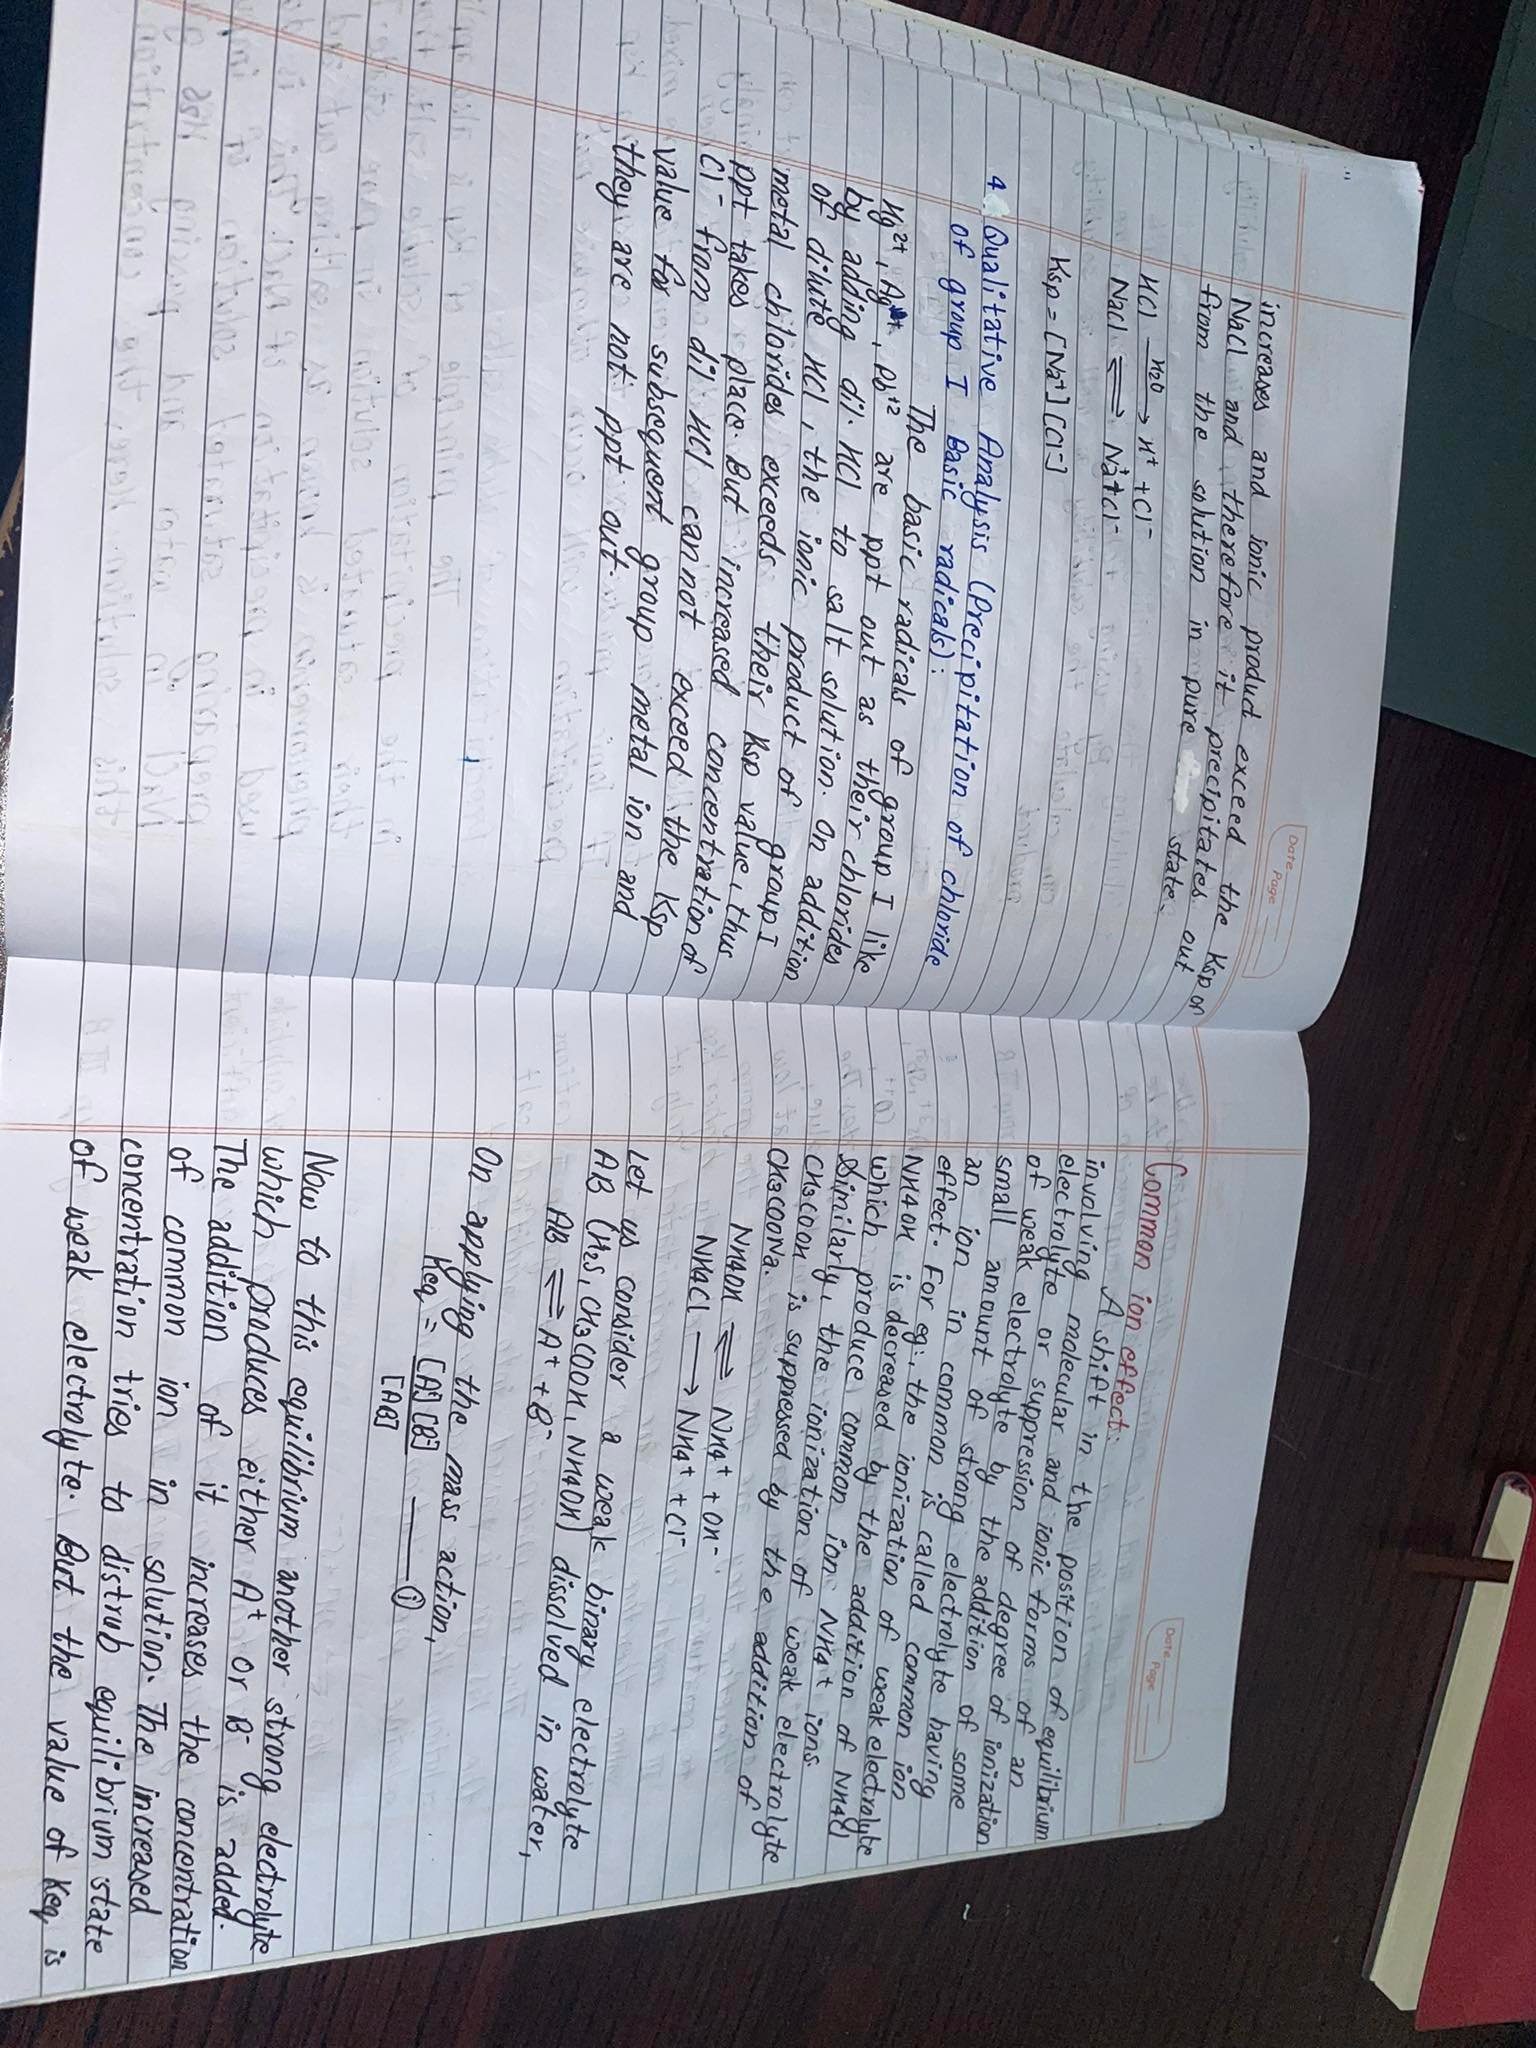 Date
Page
increases and ionic product exceed the Ksp of
NaCl and therefore it precipitates out
from the solution in pure state.
HCl H2O → H+ + Cl-
NaCl ⇌ Na+ + Cl-
Ksp = [Na+] [Cl-]
4. Qualitative Analysis (Precipitation of chloride
of group I Basic radicals):
The basic radicals of group I like
Hg2+, Ag+, Pb+2 are ppt out as their chlorides
by adding dil. HCl to salt solution. On addition
of dilute HCl, the ionic product of group I
metal chlorides exceeds their Ksp value, thus
ppt takes place. But increased concentration of
Cl- from dil HCl cannot exceed the Ksp
value for subsequent group metal ion and
they are not ppt out.
Date
Page
Common ion effect:
A shift in the position of equilibrium
involving molecular and ionic forms of an
electrolyte or suppression of degree of ionization
of weak electrolyte by the addition of some
small amount of strong electrolyte having
an ion in common is called common ion
effect. For eg:, the ionization of weak electrolyte
NH4OH is decreased by the addition of NH4Cl
which produce common ion NH4+ ions.
Similarly, the ionization of weak electrolyte
CH3COOH is suppressed by the addition of
CH3COONa.
NH4OH ⇌ NH4+ + OH-
NH4Cl → NH4+ + Cl-
Let us consider a weak binary electrolyte
AB (H2S, CH3COOH, NH4OH) dissolved in water,
AB ⇌ A+ + B-
On applying the mass action,
Keq = [A+] [B-] —— (i)
[AB]
Now to this equilibrium another strong electrolyte
which produces either A+ or B- is added.
The addition of it increases the concentration
of common ion in solution. The increased
concentration tries to distrub equilibrium state
of weak electrolyte. But the value of Keq is